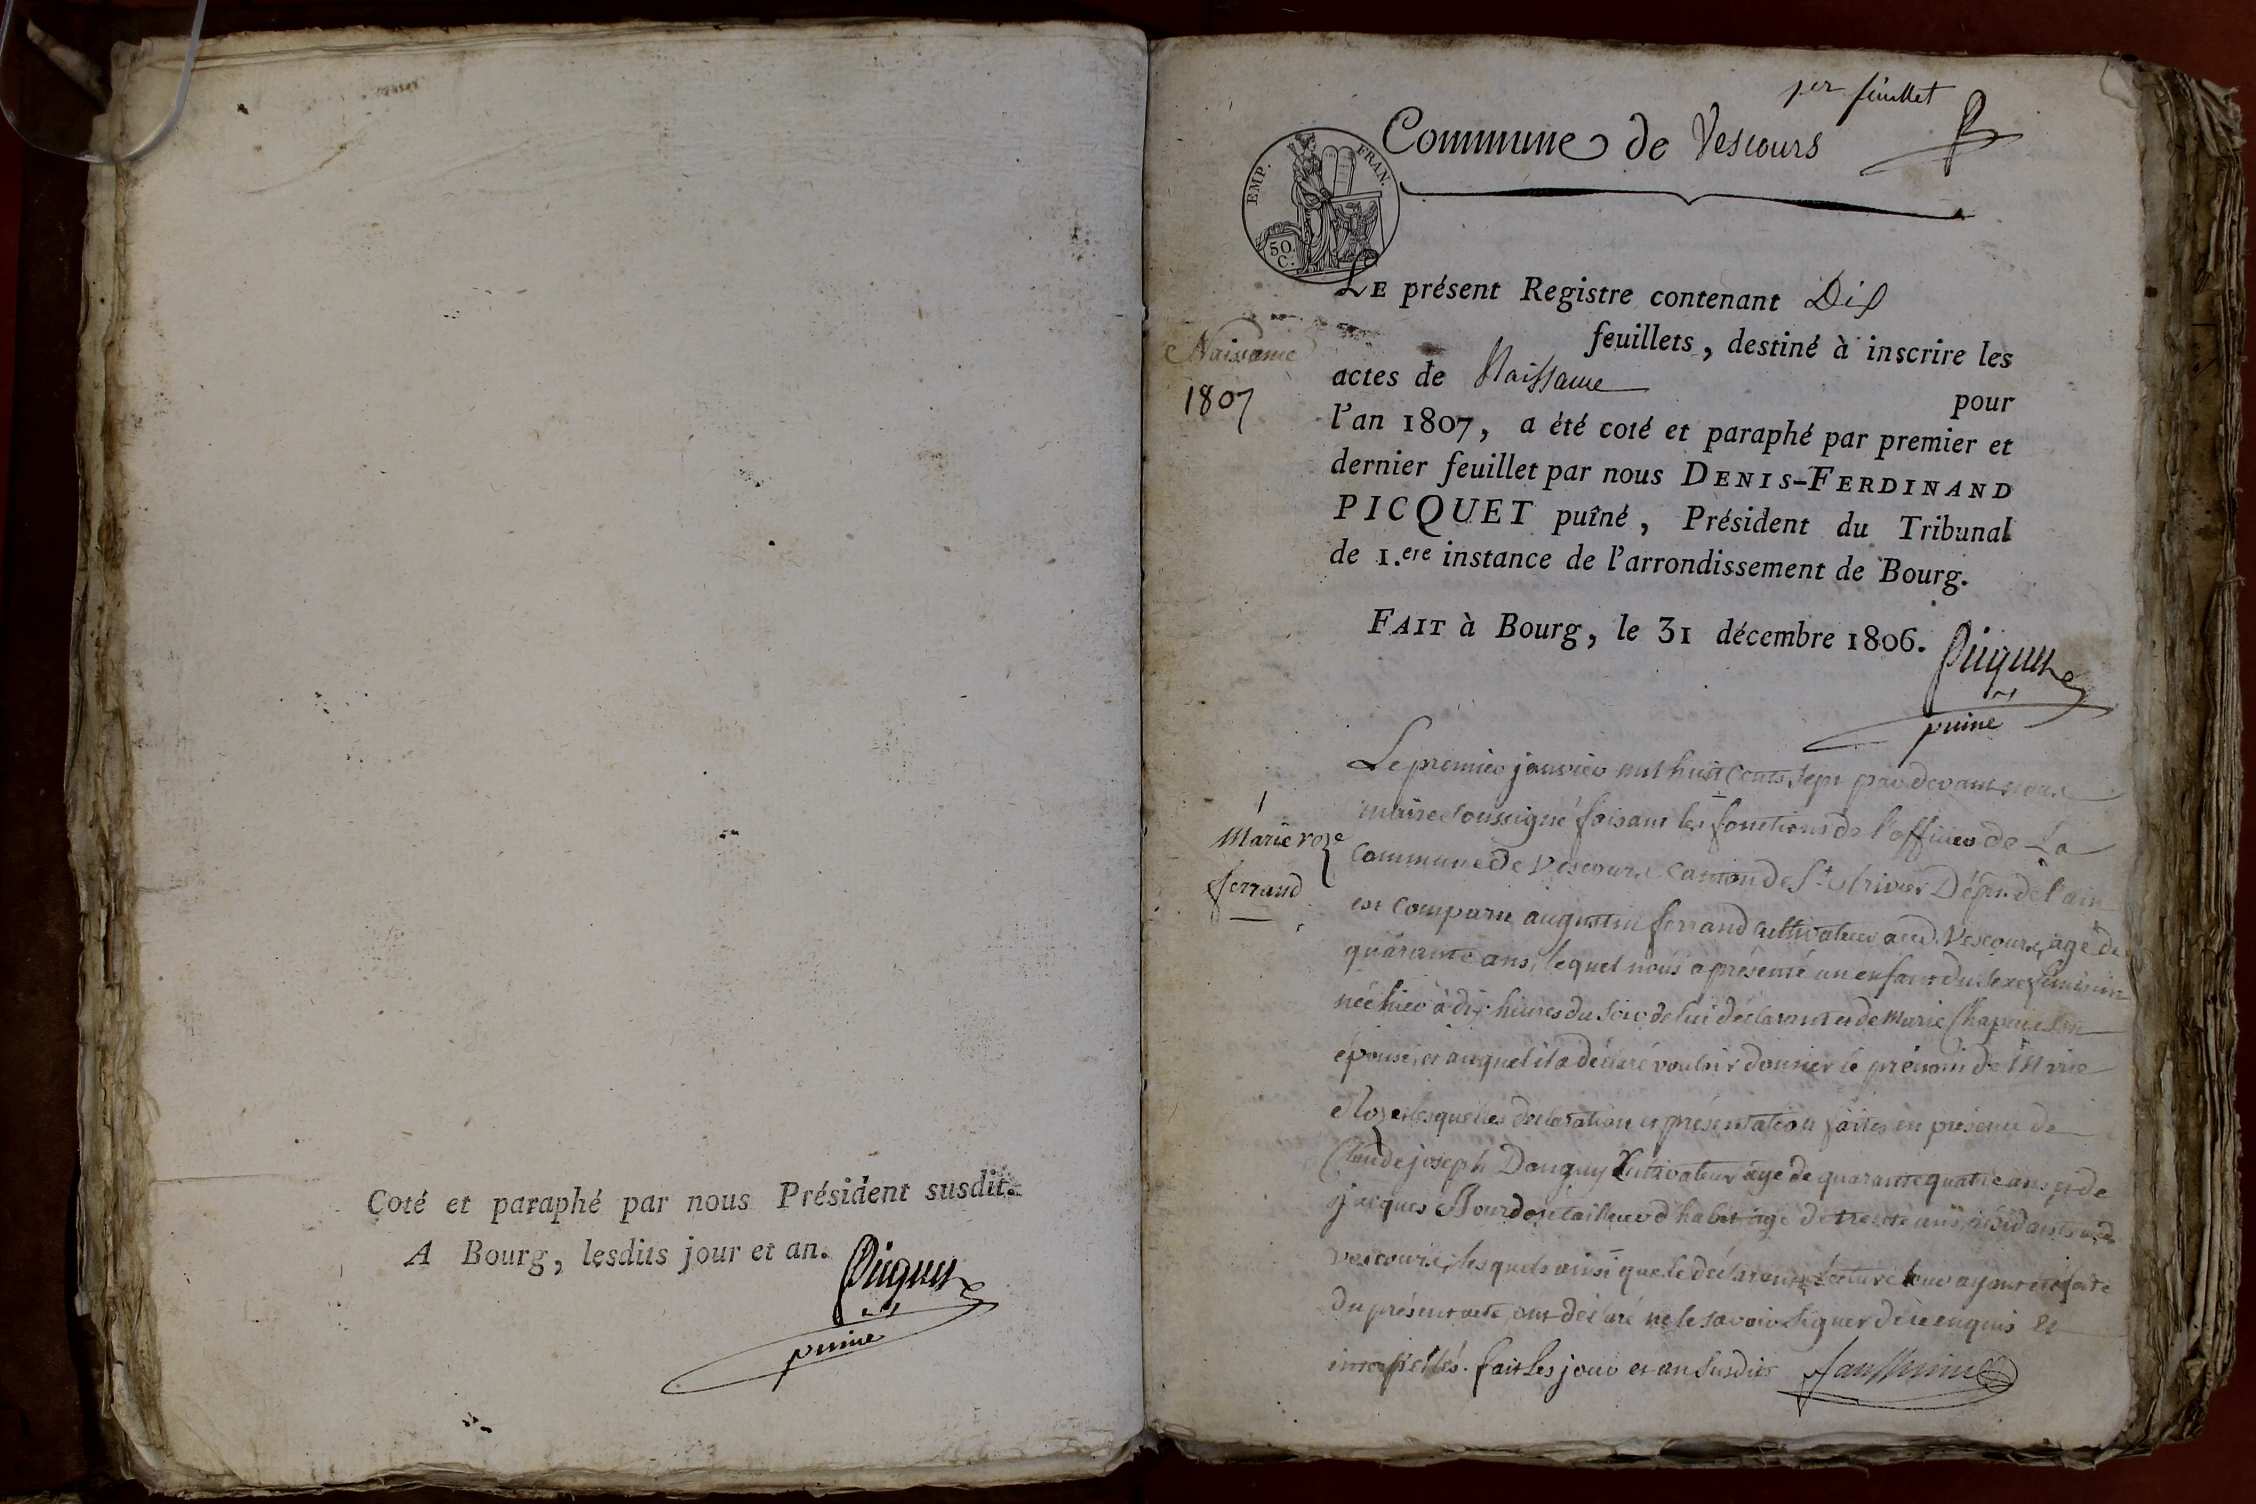 Coté et paraphé par nous Président susdit.
A Bourg, lesdits jour et an.
Picquet
puiné
1er feuillet
Commune de Vescours
EMP. FRAN.
50.
C.
LE présent Registre contenant Dix
feuillets, destiné à inscrire les
actes de Naissance
pour
l'an 1807, a été coté et paraphé par premier et
dernier feuillet par nous DENIS-FERDINAND
PICQUET puîné, Président du Tribunal
de 1.ere instance de l'arrondissement de Bourg.
FAIT à Bourg, le 31 décembre 1806.
Picquet
puiné
Naissance
1807
1
Marie roze
ferrand
Le premier janvier mil huit cents sept par devant nous
maire soussigné faisant les fonctions de l'officier de La
Commune de Vescours Canton de St trivier Dépt de l'ain
est comparu augustin ferrand cultivateur aud. Vescours, agé de
quarante ans, lequel nous a présenté un enfant du sexe feminin
née hier à dix heures du soir de lui déclarant et de Marie Chapuis son
épouse, et auquel il a déclaré vouloir donner le prénom de Marie
Roze lesquelles declaration et présentation faites en présence de
Claude joseph Danguy Cultivateur agé de quarante quatre ans et de
jacques Bourdon tailleur d'habit agé de trente ans, résidants aud.
vescours, lesquels ainsi que le déclarant, lecture leur ayant été faite
du présent acte, ont déclaré ne le savoir signer de ce enquis et
interpellés. fait les jour et an susdits